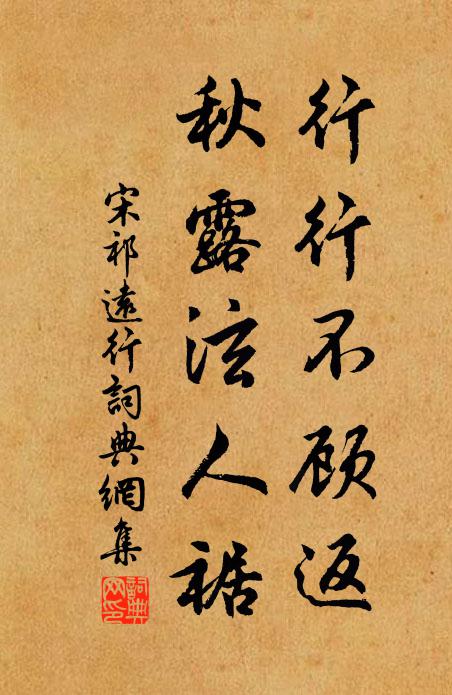 行行不顾返
秋露泫人裾
宋祁遠行詞典網集
詞典网印